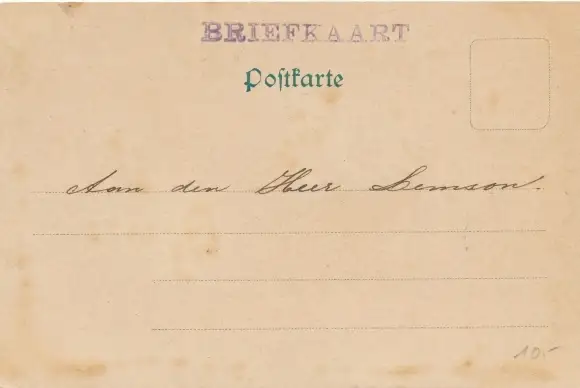 BRIEFKAART
Poſtkarte
Aan den Heer Lemson.
10.-